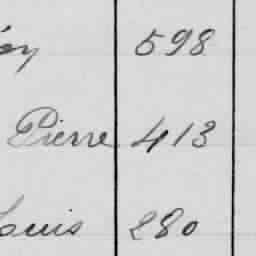 598
Pierre 413
Louis 280